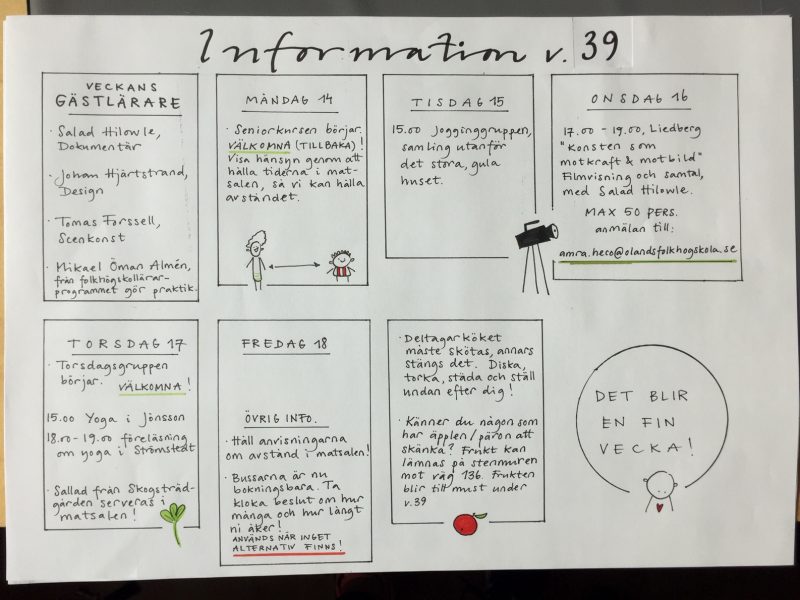 Information v. 39
VECKANS
GÄSTLÄRARE
· Salad Hilowle,
Dokumentär
· Johan Hjärtstrand,
Design
· Tomas Forssell,
Scenkonst
· Mikael Öman Almén,
från folkhögskollärar-
programmet gör praktik.
MÅNDAG 14
· Seniorkursen börjar.
VÄLKOMNA (TILLBAKA)!
Visa hänsyn genom att
hålla tiderna i mat-
salen, så vi kan hålla
avståndet.
TISDAG 15
15.00 Jogginggruppen,
samling utanför
det stora, gula
huset.
ONSDAG 16
17.00 - 19.00, Liedberg
"Konsten som
motkraft & motbild"
Filmvisning och samtal,
med Salad Hilowle.
MAX 50 PERS.
anmälan till:
amra.heco@olandsfolkhogskola.se
TORSDAG 17
· Torsdagsgruppen
börjar. VÄLKOMNA!
15.00 Yoga i Jönsson
18.00 - 19.00 föreläsning
om yoga i Strömstedt
· Sallad från Skogsträd-
gården serveras i
matsalen!
FREDAG 18
ÖVRIG INFO.
· Håll anvisningarna
om avstånd i matsalen!
· Bussarna är nu
bokningsbara. Ta
kloka beslut om hur
många och hur långt
ni åker!
ANVÄNDS NÄR INGET
ALTERNATIV FINNS!
· Deltagarköket
måste skötas, annars
stängs det. Diska,
torka, städa och ställ
undan efter dig!
· Känner du någon som
har äpplen/päron att
skänka? Frukt kan
lämnas på stenmuren
mot väg 136. Frukten
blir till must under
v.39
DET BLIR
EN FIN
VECKA!